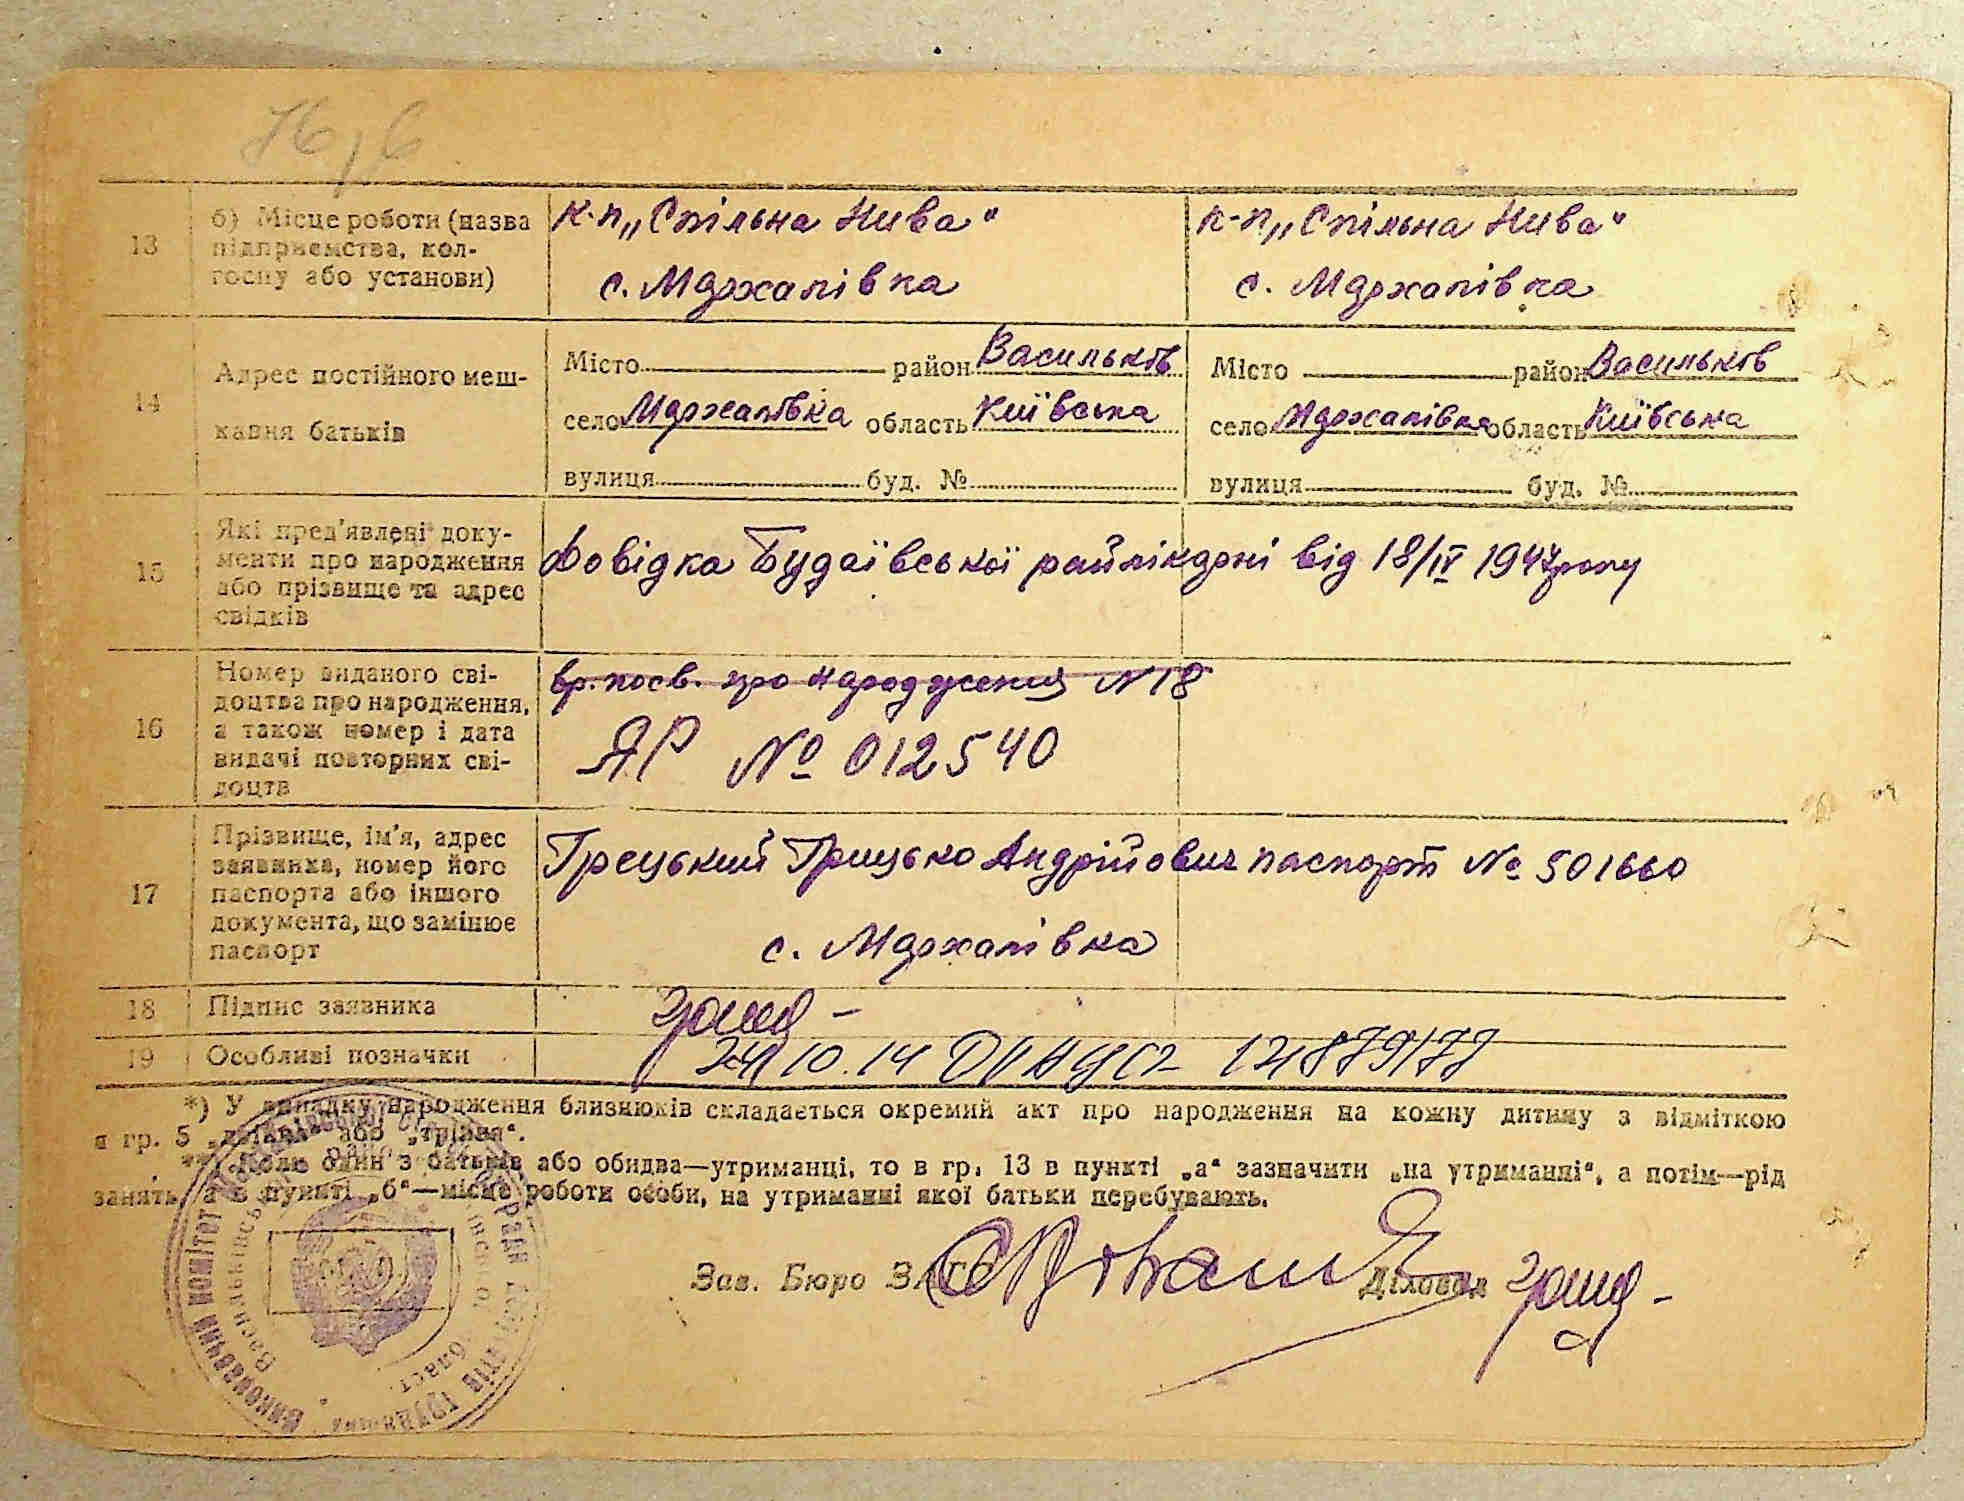 13
б) Місце роботи (назва
підприємства, кол-
госпу або установи)
к-п „Спільна Нива"
с. Мархалівка
к-п „Спільна Нива"
с. Мархалівка
14
Адрес постійного меш-
кання батьків
Місто район Васильків
село Мархалівка область Київська
вулиця буд. №
Місто район Васильків
село Мархалівка область Київська
вулиця буд. №
15
Які пред'явлені доку-
менти про народження
або прізвище та адрес
свідків
Довідка Будаївської райлікарні від 18/IV 1947 року
16
Номер виданого сві-
доцтва про народження,
а також номер і дата
видачі повторних сві-
доцтв
вр. посв. про народження N 18
ЯР № 012540
17
Прізвище, ім'я, адрес
заявника, номер його
паспорта або іншого
документа, що замінює
паспорт
Грецький Грицько Андрійович паспорт № 501660
с. Мархалівка
18
Підпис заявника
19
Особливі позначки
24 10.14
*) У випадку народження близнюків складається окремий акт про народження на кожну дитину з відміткою
в гр. 5 „двійня" або „трійня".
**) Коли один з батьків або обидва—утриманці, то в гр. 13 в пункті „а" зазначити „на утриманні", а потім—рід
занять, а в пункті „б"—місце роботи особи, на утриманні якої батьки перебувають.
Зав. Бюро ЗАГС
Діловод
Виконавчий комітет